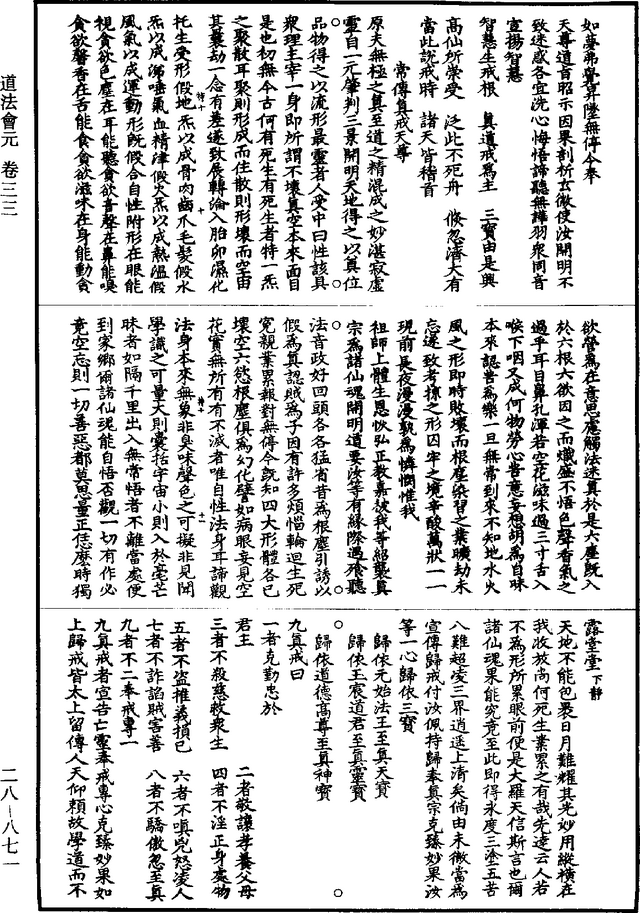 道法會元 卷三三
二八—八七一
如夢弗覺昇墜無停今奉
天尊道旨昭示因果剖析玄微使汝開明不
致迷惑各宜洗心悔悟諦聽無譁羽衆同音
宣揚智慧
智慧生戒根 真道戒爲主 三寶由是興
高仙所崇受 泛此不死舟 倏忽濟大有
當此説戒時 諸天皆稽首
常傳負戒天尊
原夫無極之真至道之精混成之妙湛寂虛
靈自一元肇判三景開明天地得之以真位
品物得之以流形最靈者人受中曰性該具
衆理主宰一身即所謂不壞真空本來面目
是也初無今古何有死生有死生者特一炁
之聚散耳聚則形成而住散則形壞而空由
其曩劫一念有差遂致展轉淪入胎卵濕化
托生受形假地炁以成骨肉齒爪毛髮假水
炁以成涕唾氣血精津假火炁以成熱溫假
風氣以成運動形既假合自性附形在眼能
視貪欲色塵在耳能聽貪欲音聲在鼻能嗅
貪欲馨香在舌能食貪欲滋味在身能動貪
欲營爲在意思慮觸法迷真於是六塵既入
於六根六欲因之而熾盛不悟色聲香氣之
過乎耳目鼻孔渾若空花滋味過三寸舌入
喉下咽又成何物勞心苦意妄想胡爲自昧
本來認苦爲樂一旦無常到來不知地水火
風之形即時敗壞而根塵染習之業曠劫未
忘遂致考掠之形囚牢之境辛酸萬狀一一
現前長夜漫漫孰爲憐憫惟我
祖師上體生恩恢弘正教嘉謨我等紹襲真
宗爲諸仙魂開明道要汝等有緣際遇飱聽
法音政好回頭各各猛省昔爲根塵引誘以
假爲真認賊爲子因有許多煩惱輪迴生死
冤親業累報對無停今既知四大形體各已
壞空六慾根塵俱爲幻化譬如病眼妄見空
花實無所有有不滅者唯自性法身耳諦觀
法身本來無象非臭味聲色之可擬非見聞
學識之可量大則囊括宇宙小則入於毫芒
昧者如隔千里出入無常悟者不離當處便
到家鄉爾諸仙魂能自悟否觀一切有作必
竟空忘則一切善惡都莫思量正恁麼時獨
露堂堂下靜
天地不能包褁日月難耀其光妙用縱橫在
我收放尚何死生業累之有哉先達云人若
不爲形所累眼前便是大羅天信斯言也爾
諸仙魂果能究竟至此即得永度三塗五苦
八難超凌三界逍遥上清矣倘由未徹當爲
宣傳歸戒付汝佩持歸奉真宗克臻妙果汝
等一心歸依三寶
歸依元始法王至真天寶
歸依玉宸道君至真靈寶
歸依道德高尊至真神寶
九真戒曰
一者克勤忠於
君王 二者敬讓孝養父母
三者不殺慈救衆生 四者不淫正身處物
五者不盗推義損已 六者不嗔兇怒凌人
七者不詐謟賊害善 八者不驕傲忽至真
九者不二奉戒專一
九真戒者宣告亡靈奉戒專心克臻妙果如
上歸戒皆太上留傳人天仰賴故學道而不